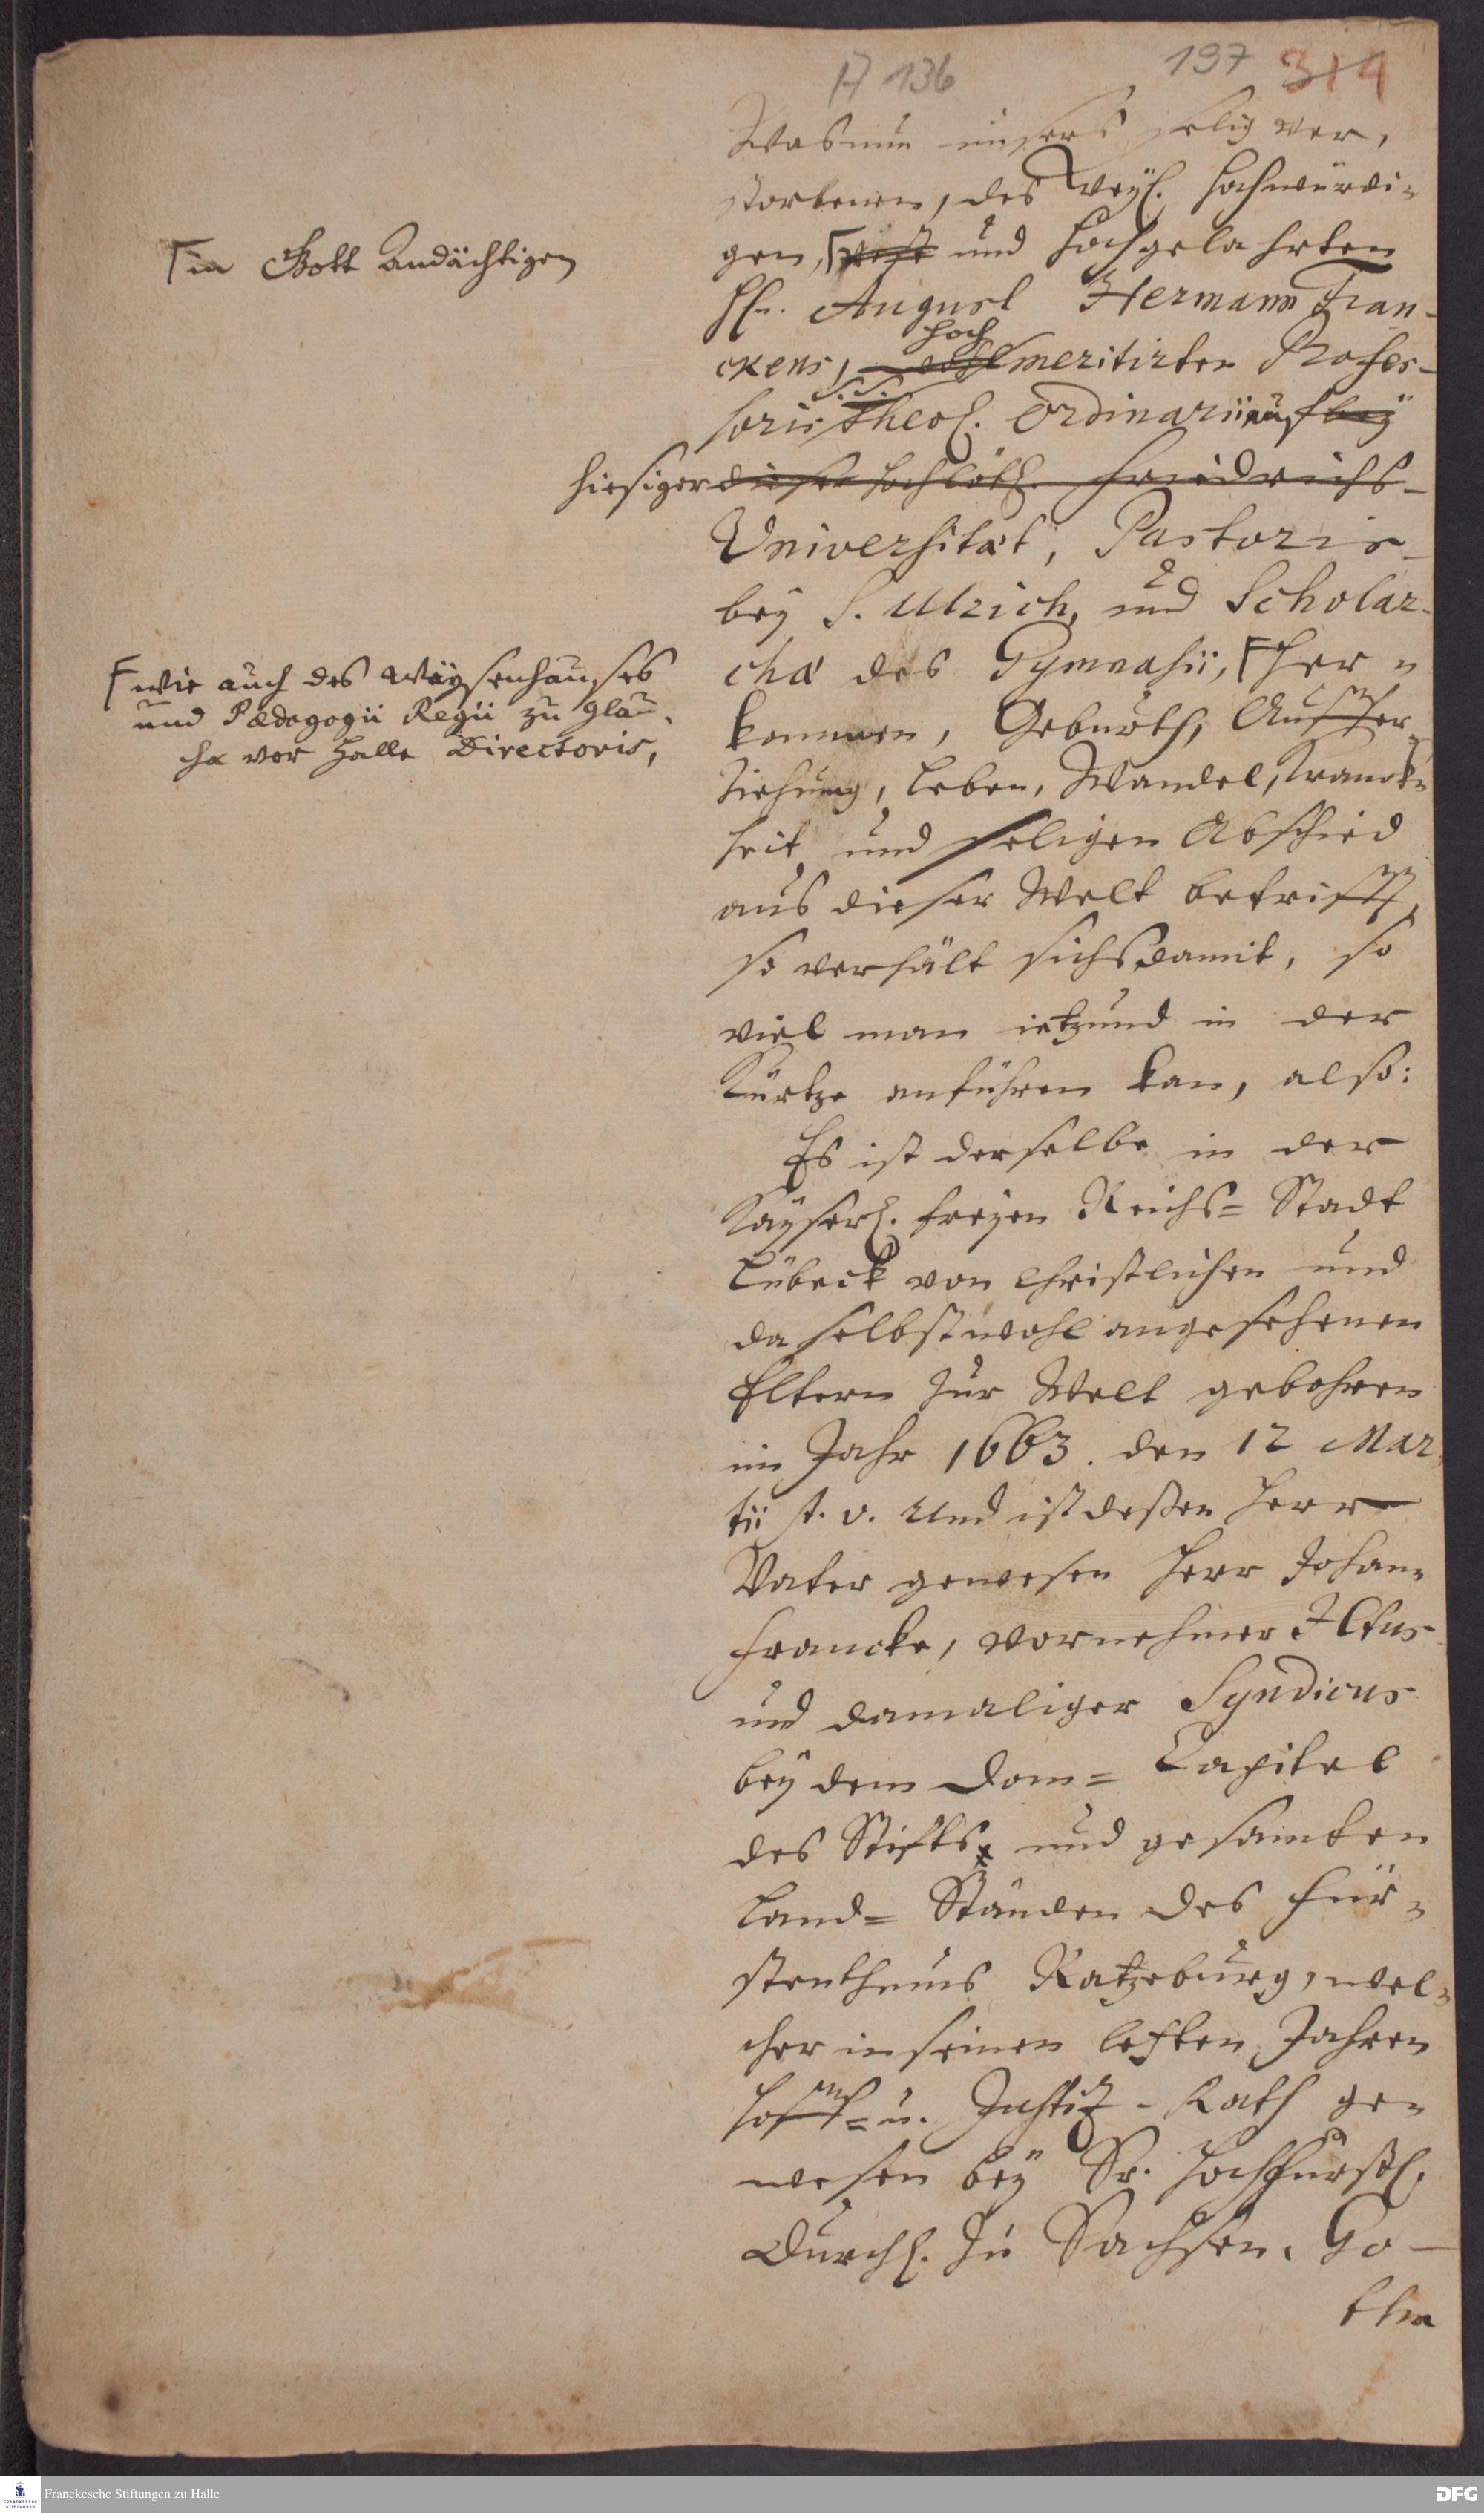 A 136
197 314
Was nun unsers selig ver,
storbenen, des Weyl. Hochwürdi-
gen, und Hochgelahrten
⌈in Gott Andächtigen
Hn. August Hermann Fran-
ckens, hoch meritirten Profes-
soris S.S. Theol. Ordinarii auf bey
hiesiger dieser hochlöbl. Friedrichs-
Universität, Pastoris
bey S. Ulrich, und Scholar-
chæ des Gymnasii, ⌈Her-
⌈wie auch des Waysenhauses
und Pædagogii Regii zu Glau-
cha vor Halle Directoris,
kommen, Geburth, Auffer-
ziehung, Leben, Wandel, Kranck-
heit und seligen Abschied
aus dieser Welt betrifft,
so verhält sichs damit, so
viel man ietzund in der
Kürtze anführen kan, also:
Es ist derselbe in der
Kayserl. freyen Reichs= Stadt
Lübeck von Christlichen und
daselbst wohl angesehenen
Eltern zur Welt gebohren
im Jahr 1663. den 12 Mar-
tii st. v. Und ist deßen Herr
Vater gewesen Herr Johan-
Francke, vornehmer JCtus
und damaliger Syndicus
bey dem Dom= Capitel
des Stiffts, und gesamten
Land= Ständen des Für-
stenthums Ratzeburg, wel-
cher in seinen letzten Jahren
Hoff= u. Justitz-Rath ge-
wesen bey Sr. Hochfürstl.
Durchl. zu Sachsen. Go-
tha
Franckesche Stiftungen zu Halle
DFG